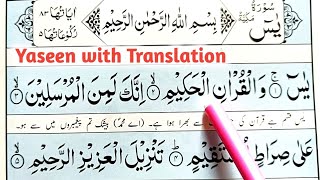 سُوْرَةُ يٰسٓ مَكِّيَّةٌ
بِسْمِ اللهِ الرَّحْمٰنِ الرَّحِيْمِ
اٰيَاتُهَا ٨٣
رُكُوْعَاتُهَا ٥
Yaseen with Translation
يٰسٓ ۚ ١ وَالْقُرْاٰنِ الْحَكِيْمِ ۙ ٢ اِنَّكَ لَمِنَ الْمُرْسَلِيْنَ ۙ ٣
یٰس قسم ہے قرآن کی جو حکمت سے بھرا ہوا ہے۔ (اے محمدؐ) بیشک تم پیغمبروں میں سے ہو۔
عَلٰى صِرَاطٍ مُّسْتَقِيْمٍ ؕ ٤ تَنْزِيْلَ الْعَزِيْزِ الرَّحِيْمِ ۙ ٥